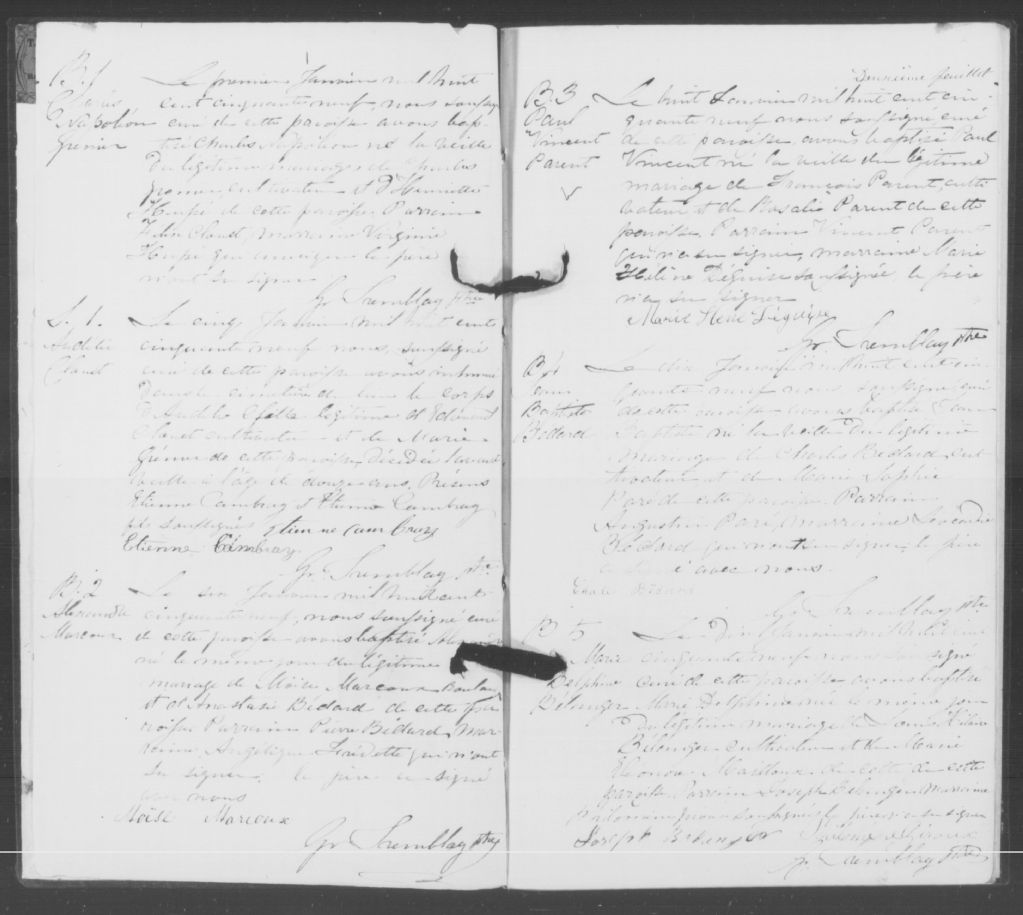 B. 1
Charles
Napoléon
Grenier
Le premier Janvier mil huit
cent cinquante neuf, nous, soussigné
curé de cette paroisse avons bap-
tisé Charles Napoléon né la veille
du légitime mariage de Charles
Grenier, cultivateur et d'Henriette
Hupé de cette paroisse. Parrain
Clouet, marraine Virginie
Hupé qui ainsi que le père
n'ont su signer.
Gr Tremblay Ptre
S. 1.
Audélie
Clouet
Le cinq Janvier mil huit cent
cinquante neuf nous, soussigné
curé de cette paroisse avons inhumé
dans le cimetière de ce lieu le corps
d'Audélie fille légitime d'Edouard
Clouet cultivateur et de Marie
Grenier de cette paroisse, décédée l'avant
veille à l'âge de douze ans. Présens
Etienne Cambray et Etienne Cambray
fils soussignés
Etienne Cambray
Gr Tremblay Ptre
B. 2
Alexandre
Marcoux
Le six Janvier mil huit cent
cinquante neuf, nous soussigné curé
de cette paroisse avons baptisé
né le même jour du légitime
mariage de Moïse Marcoux
et d'Anastasie Bédard de cette pa-
roisse Parrain Pierre Bédard, Mar-
raine, Angélique qui n'ont
su signer, le père a signé
avec nous
Moïse Marcoux
Gr Tremblay Ptre
Deuxième feuillet
B. 3
Paul
Vincent
Parent
Le huit Janvier mil huit cent cin-
quante neuf nous soussigné curé
de cette paroisse, avons baptisé Paul
Vincent né la veille du légitime
mariage de François Parent, culti-
vateur et de Rosalie Parent de cette
paroisse. Parrain Vincent Parent
qui n'a su signer, marraine Marie
Hélène soussignée, le père
n'a su signer
Gr Tremblay Ptre
B. 4
Jean
Baptiste
Bédard
Le dix Janvier mil huit cent cin-
quante neuf nous soussigné curé
de cette paroisse avons baptisé Jean
Baptiste né la veille du légitime
mariage de Charles Bédard cul-
tivateur et de Marie Sophie
Paré de cette paroisse Parrain
Augustin Paré, marraine Léocadie
Bédard qui n'ont su signer, le père
a signé avec nous.
Charle Bédard
Gr Tremblay Ptre
B 5
Marie
Delphine
Bélanger
Le Janvier mil huit cent
cinquante neuf nous soussigné
curé de cette paroisse avons baptisé
Marie Delphine née le même jour
du légitime mariage de Louis Hilaire
Bélanger cultivateur et de Marie
Eléonore Mailloux de cette
paroisse Parrain Joseph Bélanger, Marraine
Philomène soussignés le père n'a su signer
Joseph Belenger
Gr Tremblay Ptre